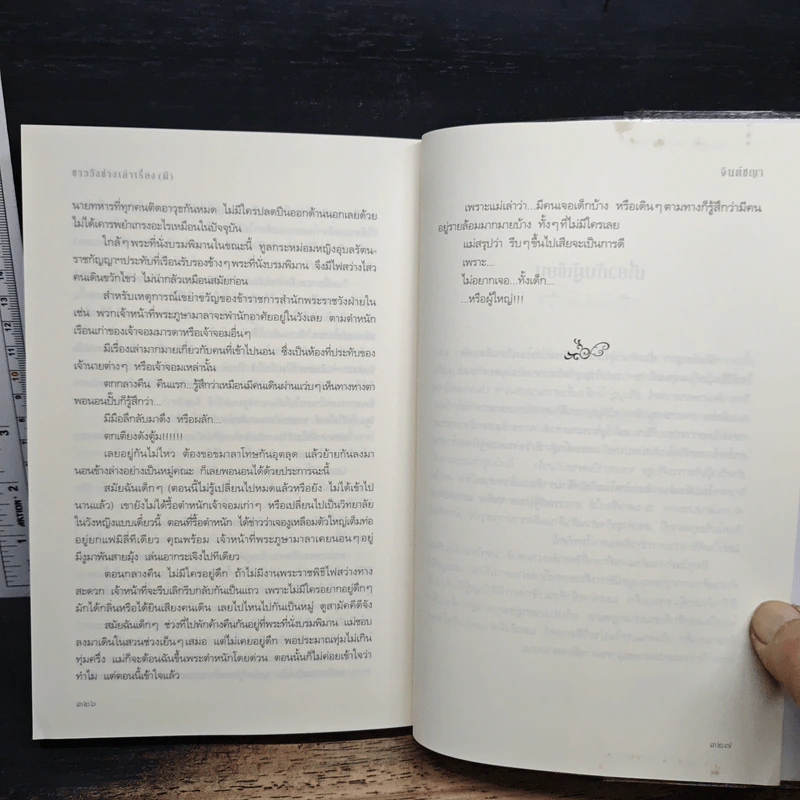 ชาววังช่างเล่าเรื่อง (ผี)
นายทหารที่ทุกคนติดอาวุธกันหมด ไม่มีใครปลดปืนออกด้านนอกเลยด้วย
ไม่ได้เคารพยำเกรงอะไรเหมือนในปัจจุบัน
ใกล้ๆ พระที่นั่งบรมพิมานในขณะนี้ ทูลกระหม่อมหญิงอุบลรัตน-
ราชกัญญาฯ ประทับที่เรือนรับรองข้างๆ พระที่นั่งบรมพิมาน จึงมีไฟสว่างไสว
คนเดินขวักไขว่ ไม่น่ากลัวเหมือนสมัยก่อน
สำหรับเหตุการณ์เขย่าขวัญของข้าราชการสำนักพระราชวังฝ่ายใน
เช่น พวกเจ้าหน้าที่พระภูษามาลาจะพำนักอาศัยอยู่ในวังเลย ตามตำหนัก
เรือนเก่าของเจ้าจอมมารดาหรือเจ้าจอมอื่นๆ
มีเรื่องเล่ามากมายเกี่ยวกับคนที่เข้าไปนอน ซึ่งเป็นห้องที่ประทับของ
เจ้านายต่างๆ หรือเจ้าจอมเหล่านั้น
ตกกลางคืน คืนแรก...รู้สึกว่าเหมือนมีคนเดินผ่านแว่บๆ เห็นทางหางตา
พอนอนปั๊บก็รู้สึกว่า...
มีมือลึกลับมาดึง หรือผลัก...
ตกเตียงดังตู้ม!!!!!!
เลยอยู่กันไม่ไหว ต้องขอขมาลาโทษกันอุตลุด แล้วย้ายกันลงมา
นอนข้างล่างอย่างเป็นหมู่คณะ ก็เลยพอนอนได้ด้วยประการฉะนี้
สมัยฉันเด็กๆ (ตอนนี้ไม่รู้เปลี่ยนไปหมดแล้วหรือยัง ไม่ได้เข้าไป
นานแล้ว) เขายังไม่ได้รื้อตำหนักเจ้าจอมเก่าๆ หรือเปลี่ยนไปเป็นวิทยาลัย
ในวังหญิงแบบเดี๋ยวนี้ ตอนที่รื้อตำหนัก ได้ข่าวว่าเจองูเหลือมตัวใหญ่เต็มท่อ
อยู่ยกแฟมิลี่ทีเดียว คุณพร้อม เจ้าหน้าที่พระภูษามาลาเคยนอนๆ อยู่
มีงูมาพันสายมุ้ง เล่นเอากระเจิงไปทีเดียว
ตอนกลางคืน ไม่มีใครอยู่ดึก ถ้าไม่มีงานพระราชพิธีไฟสว่างทาง
สะดวก เจ้าหน้าที่จะรีบเลิกรีบกลับกันเป็นแถว เพราะไม่มีใครอยากอยู่ดึกๆ
มักได้กลิ่นหรือได้ยินเสียงคนเดิน เลยไปไหนไปกันเป็นหมู่ ดูสามัคคีดีจัง
สมัยฉันเด็กๆ ช่วงที่ไปพักค้างคืนกันอยู่ที่พระที่นั่งบรมพิมาน แม่ชอบ
ลงมาเดินในสวนช่วงเย็นๆ เสมอ แต่ไม่เคยอยู่ดึก พอประมาณทุ่มไม่เกิน
ทุ่มครึ่ง แม่ก็จะต้อนฉันขึ้นพระตำหนักโดยด่วน ตอนนั้นก็ไม่ค่อยเข้าใจว่า
ทำไม แต่ตอนนี้เข้าใจแล้ว
๓๒๖
จินต์ชญา
เพราะแม่เล่าว่า...มีคนเจอเด็กบ้าง หรือเดินๆ ตามทางก็รู้สึกว่ามีคน
อยู่รายล้อมมากมายบ้าง ทั้งๆ ที่ไม่มีใครเลย
แม่สรุปว่า รีบๆ ขึ้นไปเสียจะเป็นการดี
เพราะ...
ไม่อยากเจอ...ทั้งเด็ก...
...หรือผู้ใหญ่!!!
๓๒๗